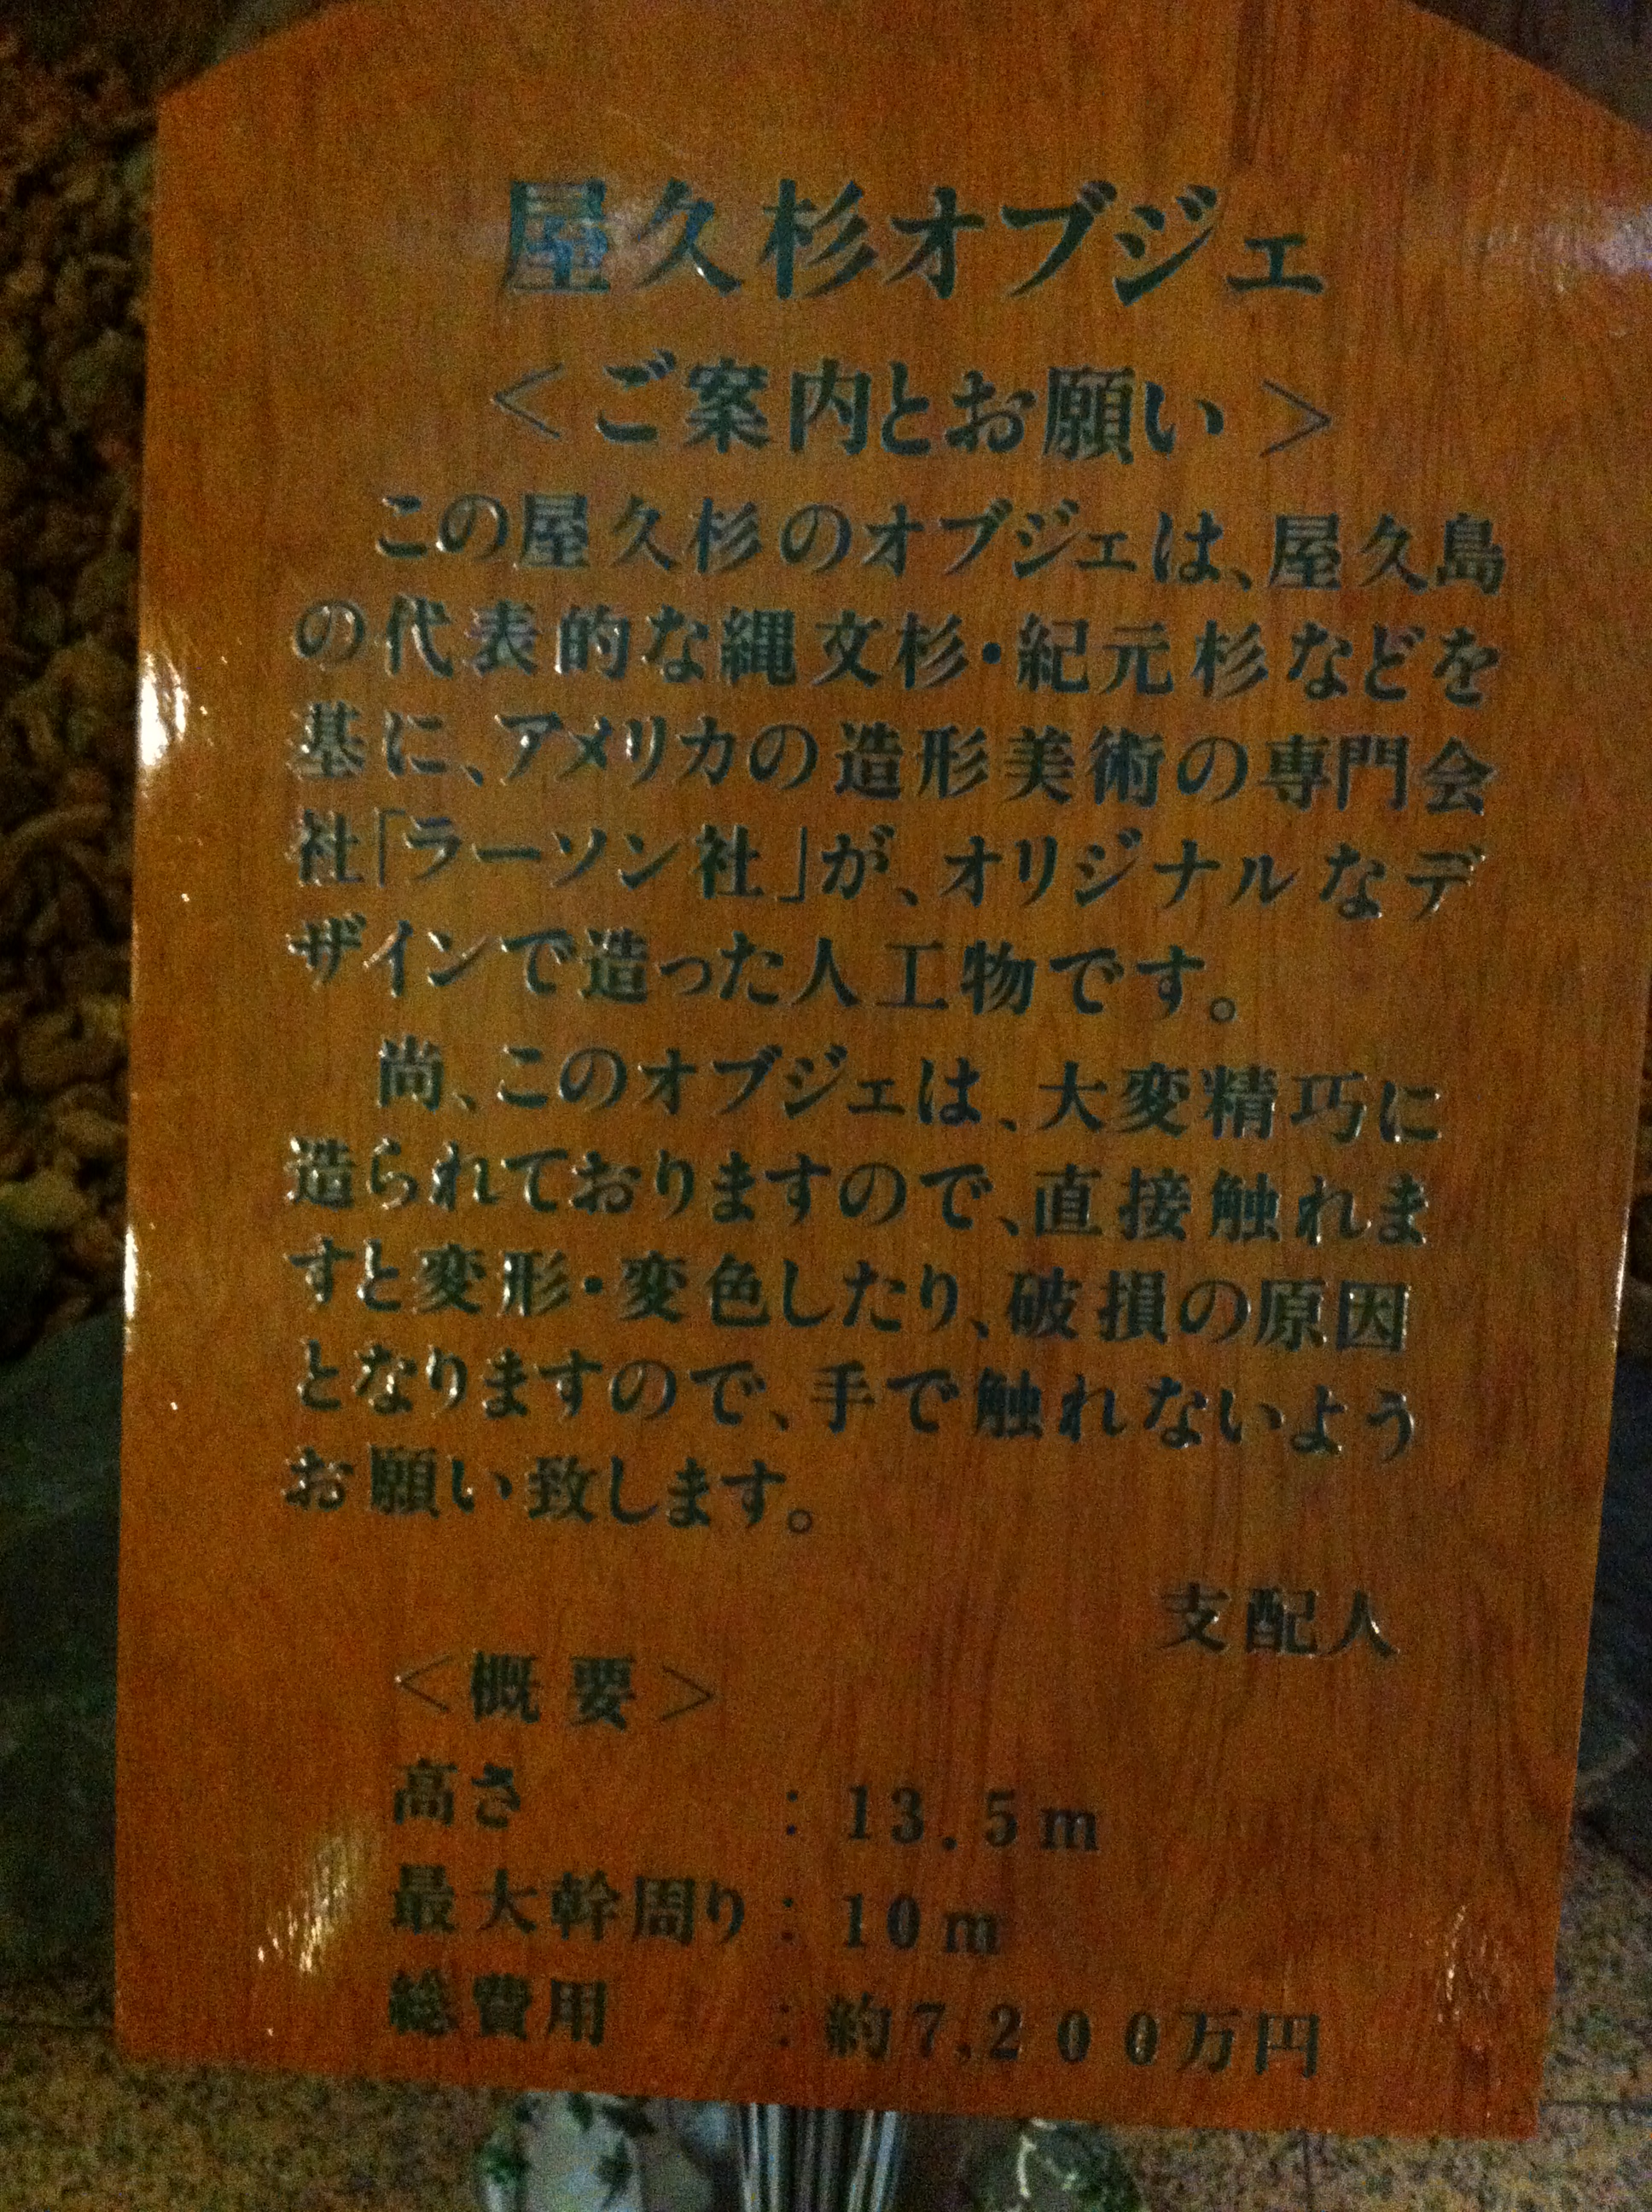 屋久杉オブジェ
＜ご案内とお願い＞
この屋久杉のオブジェは、屋久島
の代表的な縄文杉・紀元杉などを
基に、アメリカの造形美術の専門会
社「ラーソン社」が、オリジナルなデ
ザインで造った人工物です。
尚、このオブジェは、大変精巧に
造られておりますので、直接触れま
すと変形・変色したり、破損の原因
となりますので、手で触れないよう
お願い致します。
支配人
＜概要＞
高さ：13.5m
最大幹周り：10m
総費用：約7,200万円